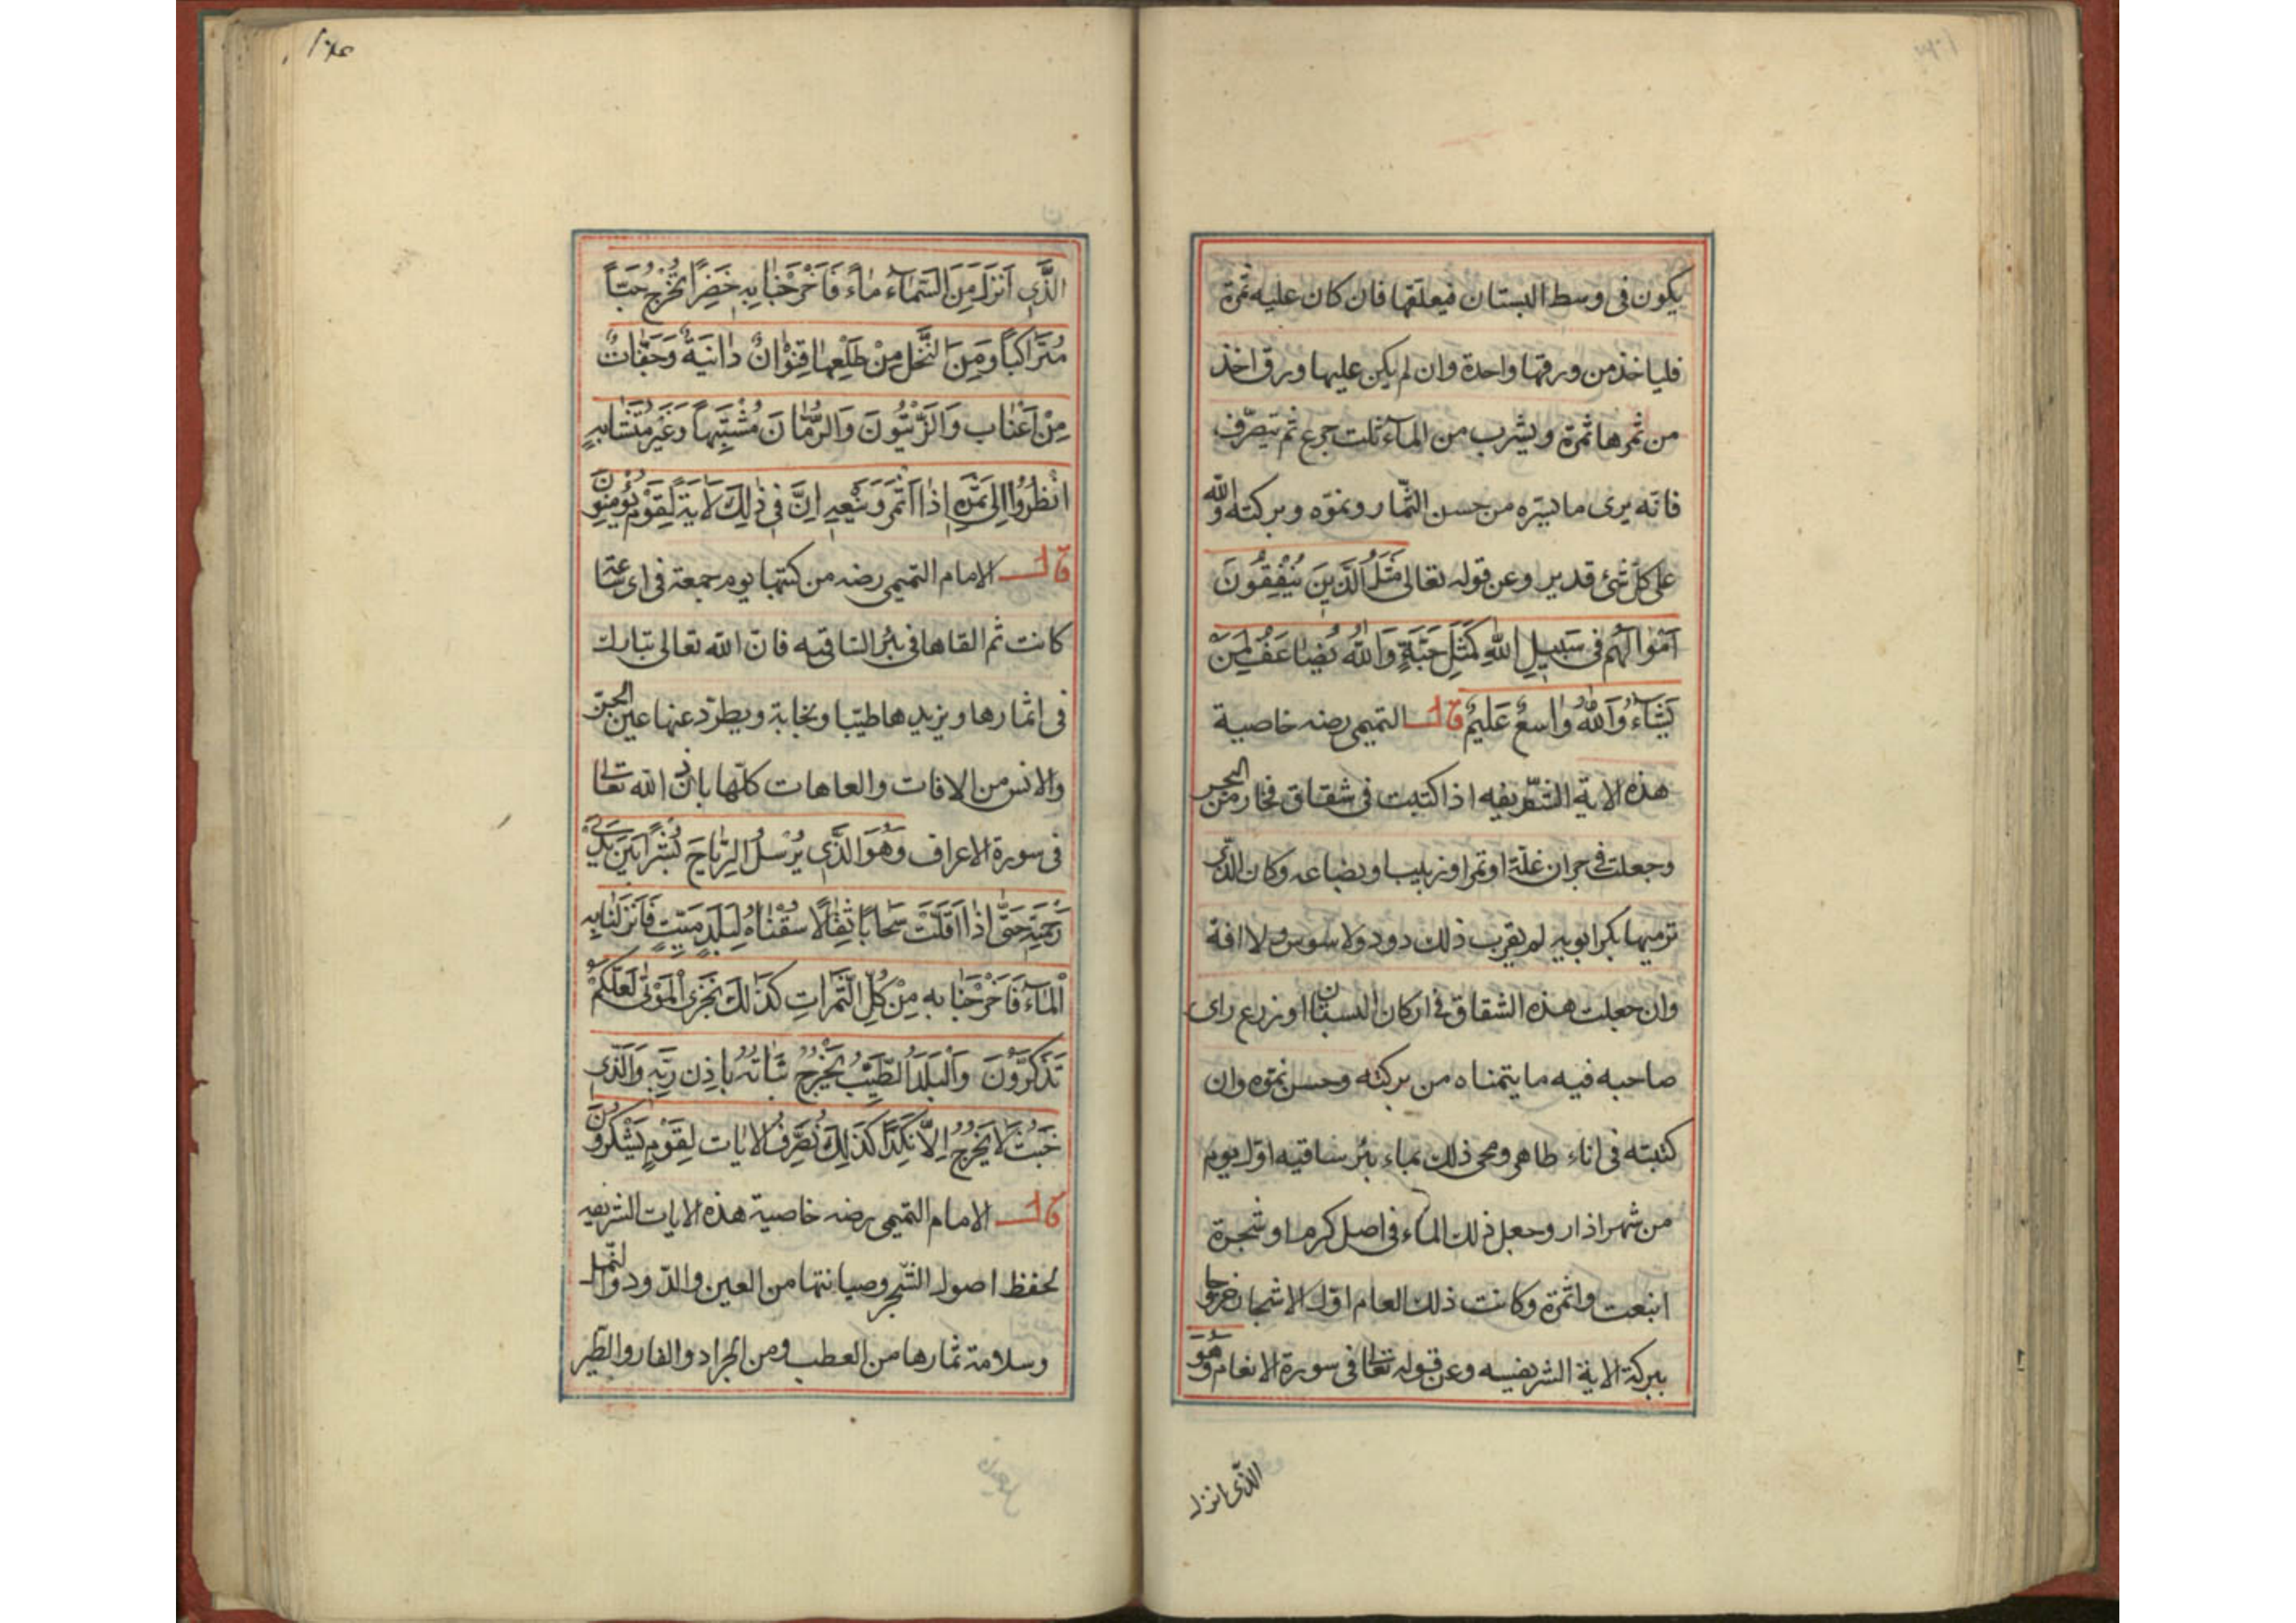 يكون فى وسط البستان فيعلقها فان كان عليه ثمرة
فلياخذ من ورقها واحدة وان لم يكن عليها ورق اخذ
من ثمرها ثمرة ويشرب من المآء ثلث جرع ثم يتصرّف
فانّه يرى ما يسّره من حسن الثّمار ونموّه وبركته والله
على كلّ شئ قدير وعن قوله تعالى مَثَلُ الَّذَينَ يُنْفِقُونَ
اَمْوالَهُم فى سَبيلِ اللهِ كَمَثَلِ حَبَّةٍ وَاللهُ يُضاعَفُ لِمَنْ
يَشَآءُ وَاللهُ وَاسِعٌ عَلَيمٌ قال التميمى رضه خاصية
هذه الاية الشّريفه اذا كتبت فى شقاق فخار من البحر
وجعلت فى جران غلّة او تمر او زبيب او بضاعه وكان الّذى
ترميها بكر ابويه لم يقرب ذلك دود ولا سوس ولا افة
وان جعلت هذه الشقاق فى اركان البستان او زرع راى
صاحبه فيه ما يتمناه من بركته وحسن نموّه وان
كتبته فى اناء طاهر ومحى ذلك بماء بئر ساقيه اوّل يوم
من شهر اذار وجعل ذلك المآء فى اصل كرم او شجرة
اينعت واثمرة وكانت ذلك العام اوّل الاشجار خروجا
ببركة الاية الشريفيه وعن قوله تعالى فى سورة الانعام وَهُوَ
الّذى انزل
١٠٤
الَّذَى اَنْزَلَ مِنَ السَّمآءِ مآءً فَاَخْرَجْنا بِهِ خَضِراً نُخْرِجُ حَبّاً
مُتَراكباً وَمِنَ النَّخْلِ مِنْ طَلْعِها قِنْوانٌ دانَيةٌ وَجَنّاتٌ
مِنْ اَعْنابٍ وَالَزَّيْتُونَ وَالرُّمّانَ مُشْتَبِهاً وَغَيْرَ مُتَشابِهٍ
انْظُرُوا اِلى ثَمَرِهِ اِذا اَثْمَرَ وَيَنْعِهِ اِنَّ فى ذلِكَ لَايَةً لِقَوْمٍ يُؤْمِنوُنَ
قال الامام التميمى رضه من كتبها يوم جمعة فى اى ساعة
كانت ثم القاها فى بئر السّاقيه فانّ الله تعالى تبارك
فى اثمارها ويزيدها طيّبا ونجابة ويطرّد عنها عين الجنّ
والانس من الافات والعاهات كلّها باذن الله تعالى
فى سورة الاعراف وَهُوَ الَّذَى يُرْسلُ الرِّياحَ بُشْراً بَينَ يَدَىْ
رَحْمَتِهِ حَتّى اِذا اَقَلَّتْ سَحاباً ثِقالاً سُقْناهُ لِبَلَدٍ مَيّتٍ فَاَنْزَلْنا بِهِ
اْلمآءَ فَاَخْرَجْنا بِهِ مِنْ كُلِّ الثَّمَراتِ كَذلِكَ نُخْرِجُ الْمَوْتى لَعَلَّكُمْ
تَذَكَرَّوُنَ وَاْلبَلَدُ الطَّيِّبُ يَخْرُجُ نَباتُهُ بِاِذِنِ رَبِّهِ وَالَّذى
خَبُثَ لا يَخْرُجُ اِلاَّ نَكِداً كَذلِكَ نُصَرِّفُ الاياتِ لِقَوْمٍ يَشْكُرُونَ
قال الامام التميمى رضه خاصية هذه الايات الشريفه
لحفظ اصول الشّجر وصيانتها من العين والدّود والنّمل
وسلامة ثمارها من العطب ومن الجراد والفار والطّير